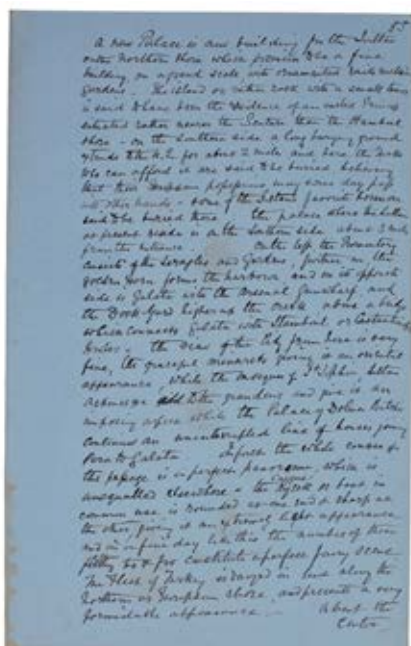 85
A new Palace is now building for the Sultan
on the northern shore which promises to be a fine
building, on a grand scale with ornamental
gardens. The island or rather rock with a small tower
is said to have been the residence of an exiled Prince
situated rather nearer the Scutari than the Stamboul
shore - on the Southern side a long burying ground
extends to the N.E. for about 2 miles and here the Turks
who can afford it are said to be buried believing
that their European possessions may some day pass
into other hands - some of the Sultans favorite horses are
said to be buried there the palace where the Sultan
at present resides is on the Southern side about 2 miles
from the entrance On the left the Promontory
consists of the Seraglio and Gardens, further on the
golden Horn forms the harbour and on its opposite
side is Galata with the Arsenal
the Dock Yard higher up the creek above a bridge
which connects Galata with Stamboul or Constantinople
the view of the City from here is very
fine, the graceful minarets giving it an oriental
appearance, while the mosque of St Sophia, Sultan
Achmet add to the grandeur and give it an
imposing aspect while the Palace of Dolma Batche
continues an uninterrupted line of houses joining
Pera to Galata In fact the whole course of
the passage is a perfect panorama, which is
unequalled elsewhere - the Caique or boat in
common use is rounded at one end & sharp at
the other, giving it an extremely light appearance
and on a fine day like this the number of them
flitting to & fro constitute a perfect fairy scene
The Fleet of Turkey is moored in line along the
Northern or European shore, and presents a very
formidable appearance - About the
Center